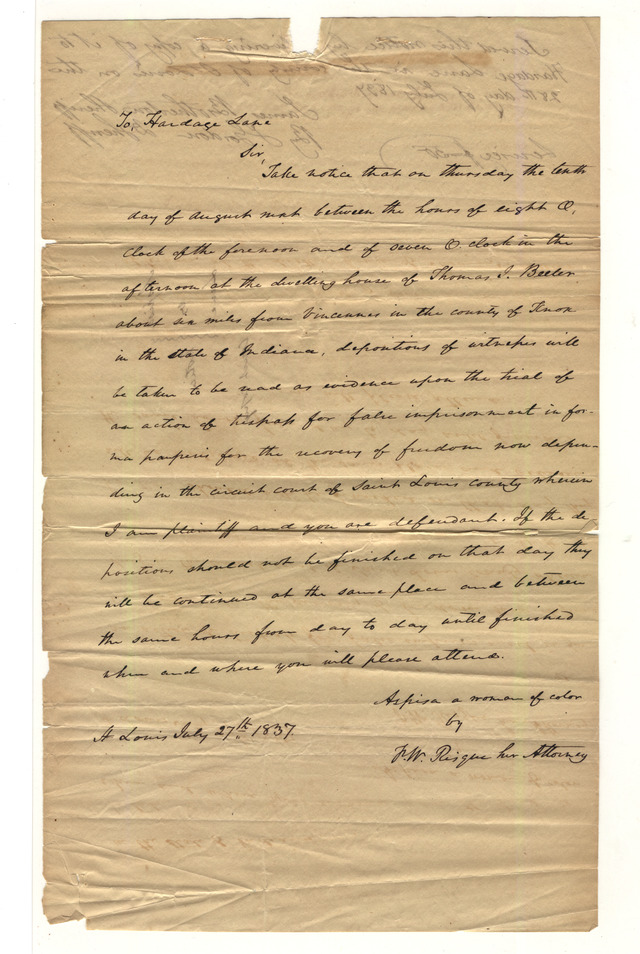 To, Hardage Lane
Sir,
Take notice that on thursday the tenth
day of august next between the hours of eight O,
clock of the forenoon and of seven O. clock in the
afternoon at the dwelling house of Thomas J. Beeler
about six miles from Vincennes in the county of Knox
in the state of Indiana, depositions of witnesses will
be taken to be read as evidence upon the trial of
an action of trespass for false imprisonment in for-
ma pauperis for the recovery of freedom now depen-
ding in the circuit court of Saint Louis county wherein
I am plaintiff and you are defendant. If the de
positions should not be finished on that day they
will be continued at the same place and between
the same hours from day to day until finished
when and where you will please attend.
Aspisa a woman of color
by
St Louis July 27th 1837.
F.W. Risque her Attorney